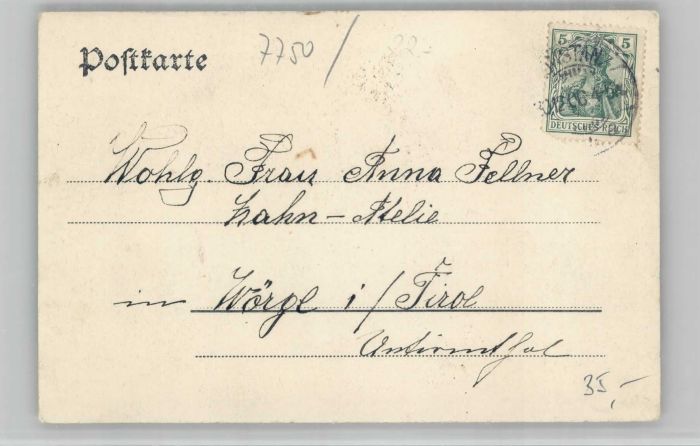 Postkarte
7750 /
5 5
DEUTSCHES REICH
Wohlg. Frau Anna Fellner
Zahn-Atelie
in Wörgl i/Tirol
Unterinnthal
35,-